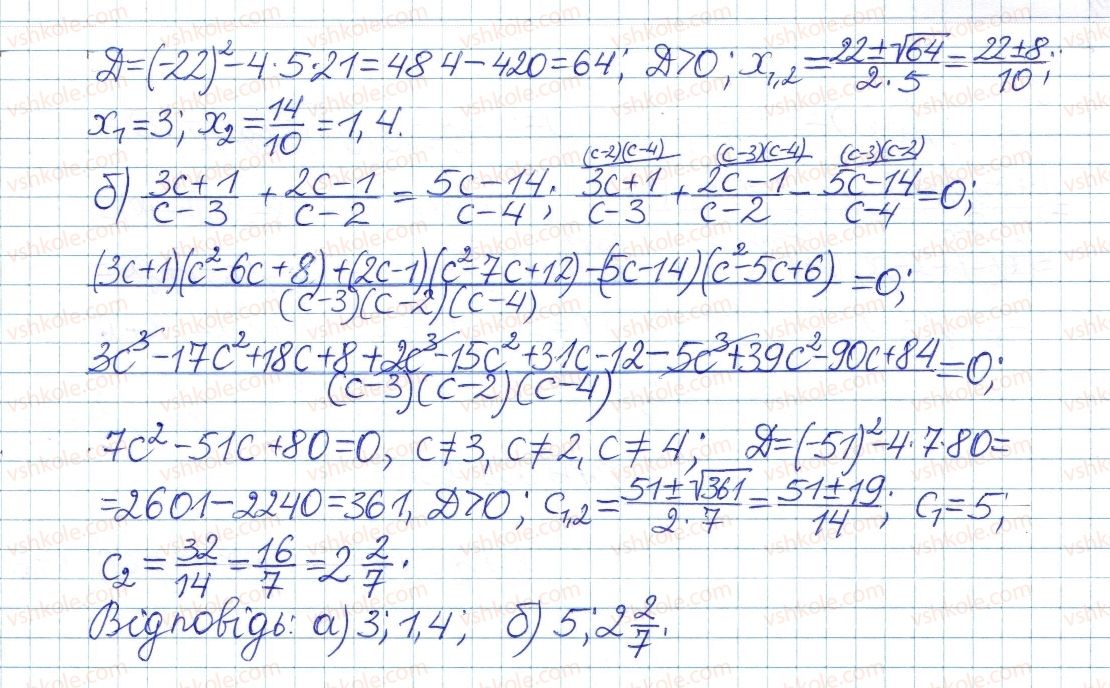 Д=(-22)²-4·5·21=484-420=64; Д>0; x₁,₂=(22±√64)/(2·5)=(22±8)/10;
x₁=3; x₂=14/10=1,4.
б) (3c+1)/(c-3) + (2c-1)/(c-2) = (5c-14)/(c-4); (c-2)(c-4) (3c+1)/(c-3) + (c-3)(c-4) (2c-1)/(c-2) - (c-3)(c-2) (5c-14)/(c-4) =0;
((3c+1)(c²-6c+8)+(2c-1)(c²-7c+12)-(5c-14)(c²-5c+6))/((c-3)(c-2)(c-4)) =0;
(3c³-17c²+18c+8+2c³-15c²+31c-12-5c³+39c²-90c+84)/((c-3)(c-2)(c-4)) =0;
7c²-51c+80=0, c≠3, c≠2, c≠4; Д=(-51)²-4·7·80=
=2601-2240=361, Д>0; c₁,₂=(51±√361)/(2·7)=(51±19)/14; c₁=5;
c₂=32/14=16/7=2 2/7.
Відповідь: а) 3; 1,4; б) 5; 2 2/7.